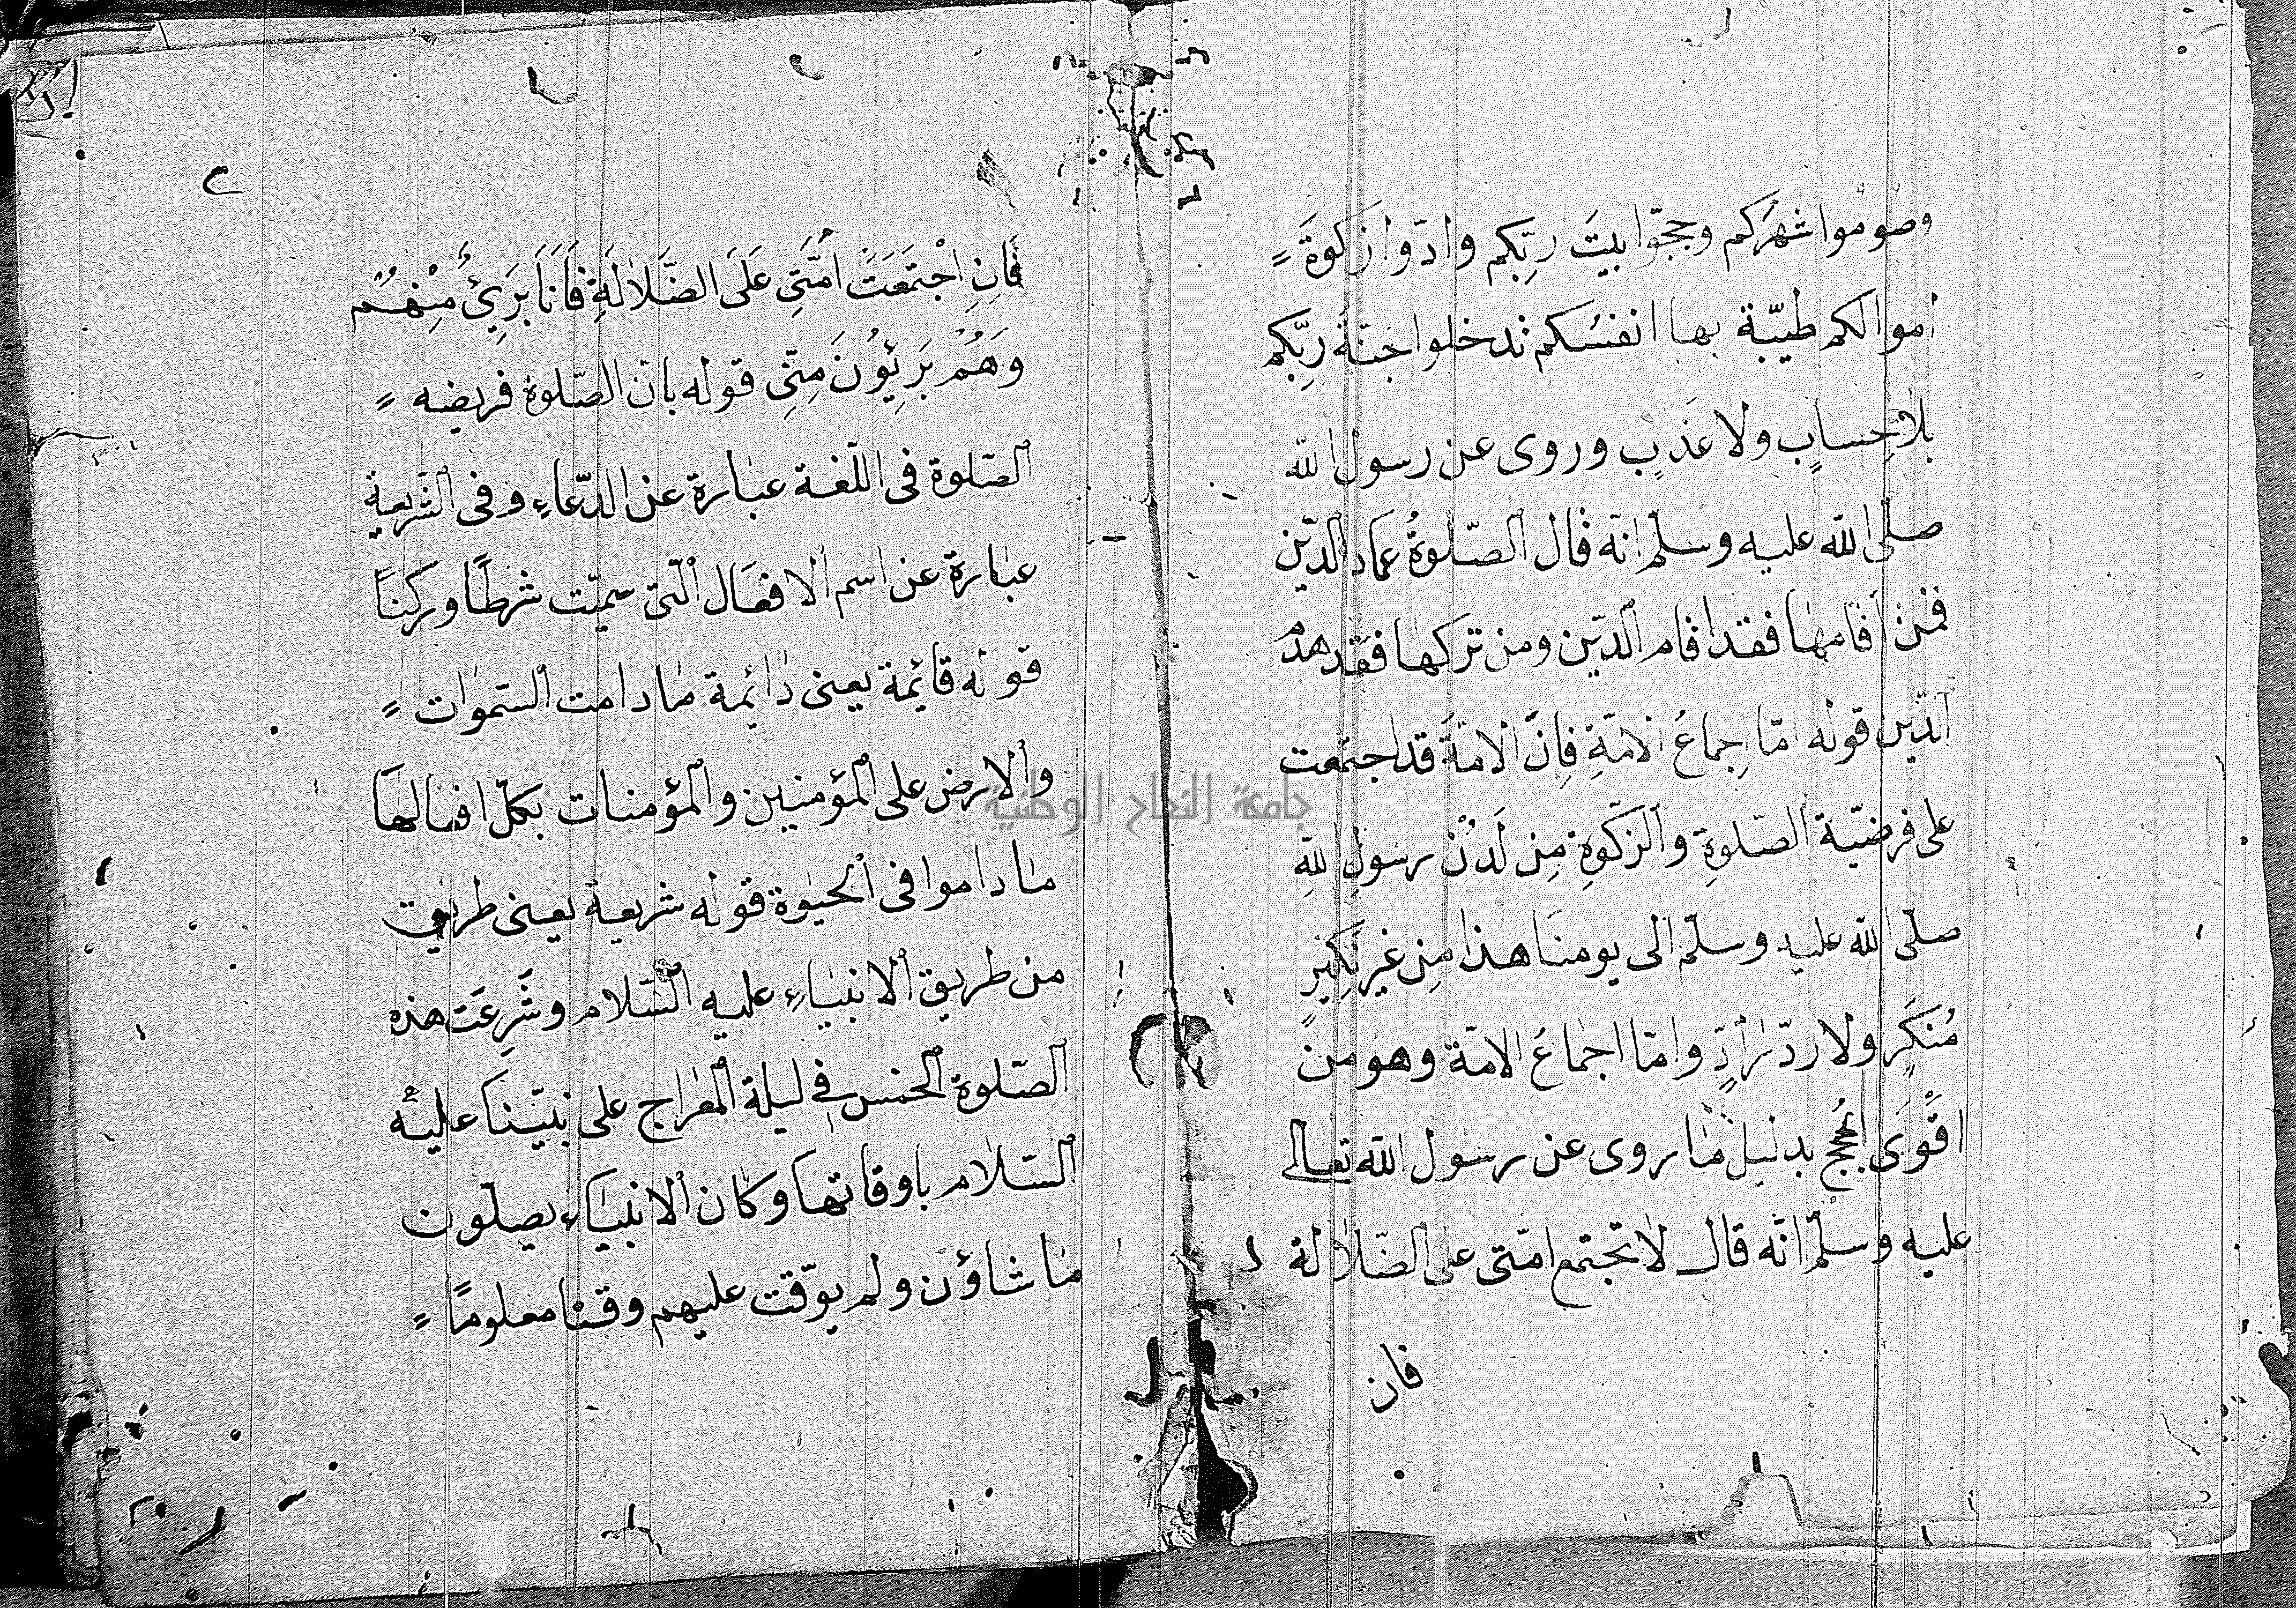 وصوموا شهركم وحجّوا بيتَ ربّكم وادّوا زكوةَ
اموالكم طيبّة بها انفسُكم تدخلوا جنّةَ ربّكم
بلا حِسابٍ ولا عَذبٍ وروى عن رسول الله
صلى الله عليه وسلم انّه قال الصّلوةُ عماد الدّين
فمن اقامها فقد اقام الدّين ومن تركها فقد هدم
الدّين قوله امّا اِجماعُ الامّةِ فاِنَّ الامّةَ قد اجتمعت
على فرضيّة الصّلوةِ والزكوةِ مِن لَدُنْ رسولِ اللهِ
صلى الله عليه وسلم الى يومنا هذا مِن غيرِ نكيرٍ
مُنكَرٍ ولا ردّ رادٍّ وامّا اجماعُ الامّة وهو من
اقوَى الحُجج بدليل ما روى عن رسول الله تعالى
عليه وسلّم انّه قال لا تجتمع امّتى على الضّلالة
فان
فَاِنِ اجْتَمَعَتْ اُمَّتِى عَلَى الضَّلَالَةِ فَاَنَا بَرِىءٌ مِنْهُمْ
وَهُمْ بَرِيئُونَ مِنّى قوله بانّ الصّلوة فريضه
الصّلوة فى اللّغة عبارة عن الدّعاءِ وفى الشّريعة
عبارة عن اسم الافعال الّتى سميّت شرطًا وركنًا
قوله قائمة يعنى دائمة ما دامت السّموات
والارض على المؤمنين والمؤمنات بكلّ افعالها
ما داموا فى الحيوة قوله شريعة يعنى طريق
من طريق الانبياءِ عليه السّلام وشُرِعَت هذه
الصّلوة الخمس فى ليلة المعراج على نبيّنا عليه
السّلام باوقاتها وكان الانبياء يصلّون
ما شاؤن ولم يوقّت عليهم وقتا معلومًا
جامعة النجاح الوطنية